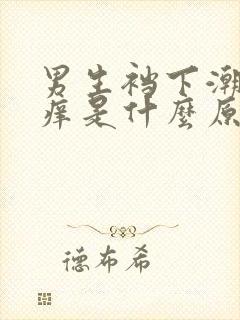 男生裆下潮
痒是什麼原
德布希